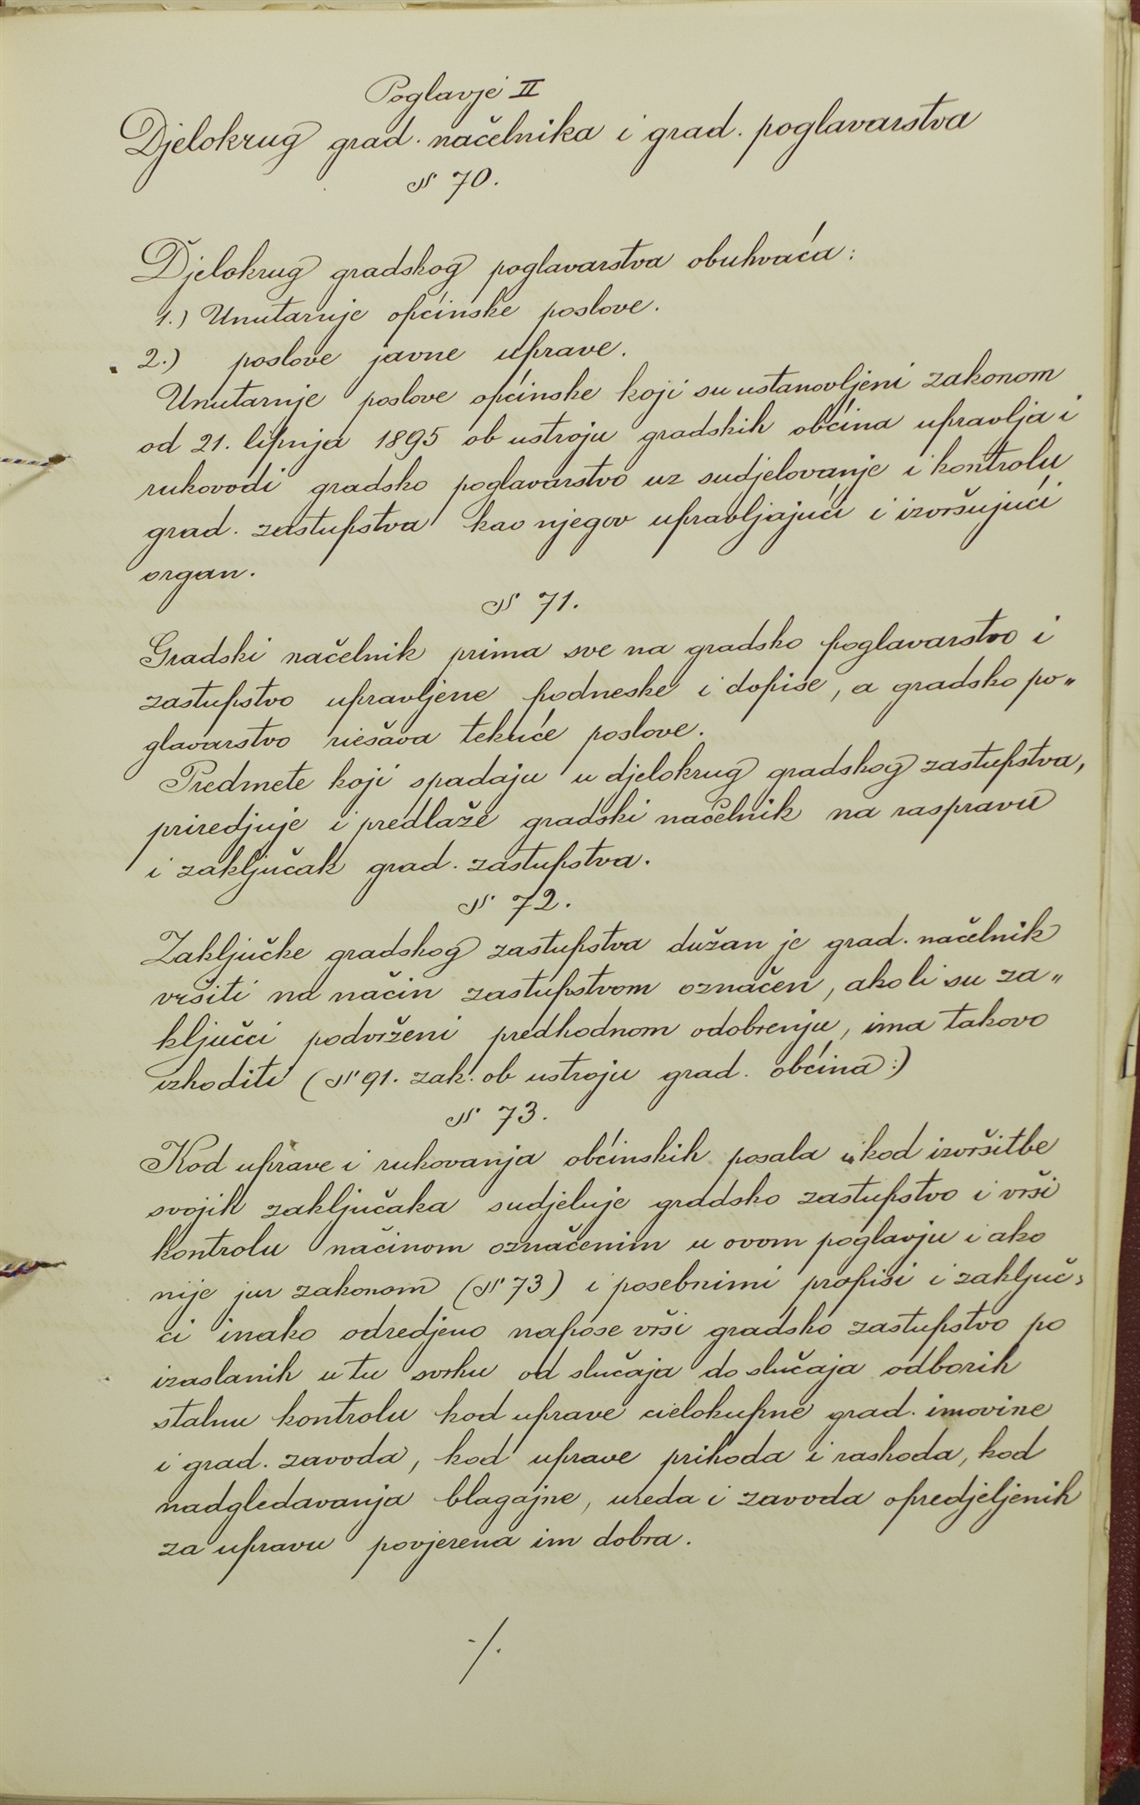 Poglavje II
Djelokrug grad. načelnika i grad. poglavarstva
§ 70.
Djelokrug gradskog poglavarstva obuhvaća:
1.) Unutarnje općinske poslove.
2.) poslove javne uprave.
Unutarnje poslove općinske koji su ustanovljeni zakonom
od 21. lipnja 1895 ob ustroju gradskih obćina upravlja i
rukovodi gradsko poglavarstvo uz sudjelovanje i kontrolu
grad. zastupstva kao njegov upravljajući i izvršujući
organ.
§ 71.
Gradski načelnik prima sve na gradsko poglavarstvo i
zastupstvo upravljene podneske i dopise, a gradsko po„
glavarstvo riešava tekuće poslove.
Predmete koji spadaju u djelokrug gradskog zastupstva,
priredjuje i predlaže gradski načelnik na raspravu
i zaključak grad. zastupstva.
§ 72.
Zaključke gradskog zastupstva dužan je grad. načelnik
vršiti na način zastupstvom označen, ako li su za„
ključci podvrženi predhodnom odobrenju, ima takovo
izhoditi (§ 91. zak. ob ustroju grad. obćina:)
§ 73.
Kod uprave i rukovanja obćinskih posala i kod izvršitbe
svojih zaključaka sudjeluje gradsko zastupstvo i vrši
kontrolu načinom označenim u ovom poglavju i ako
nije jur zakonom (§ 73) i posebnimi propisi i zaključ-
ci inako odredjeno napose vrši gradsko zastupstvo po
izaslanih u tu svrhu od slučaja do slučaja odborih
stalnu kontrolu kod uprave cielokupne grad. imovine
i grad. zavoda, kod uprave prihoda i rashoda, kod
nadgledavanja blagajne, ureda i zavoda opredjeljenih
za upravu povjerena im dobra.
·/.